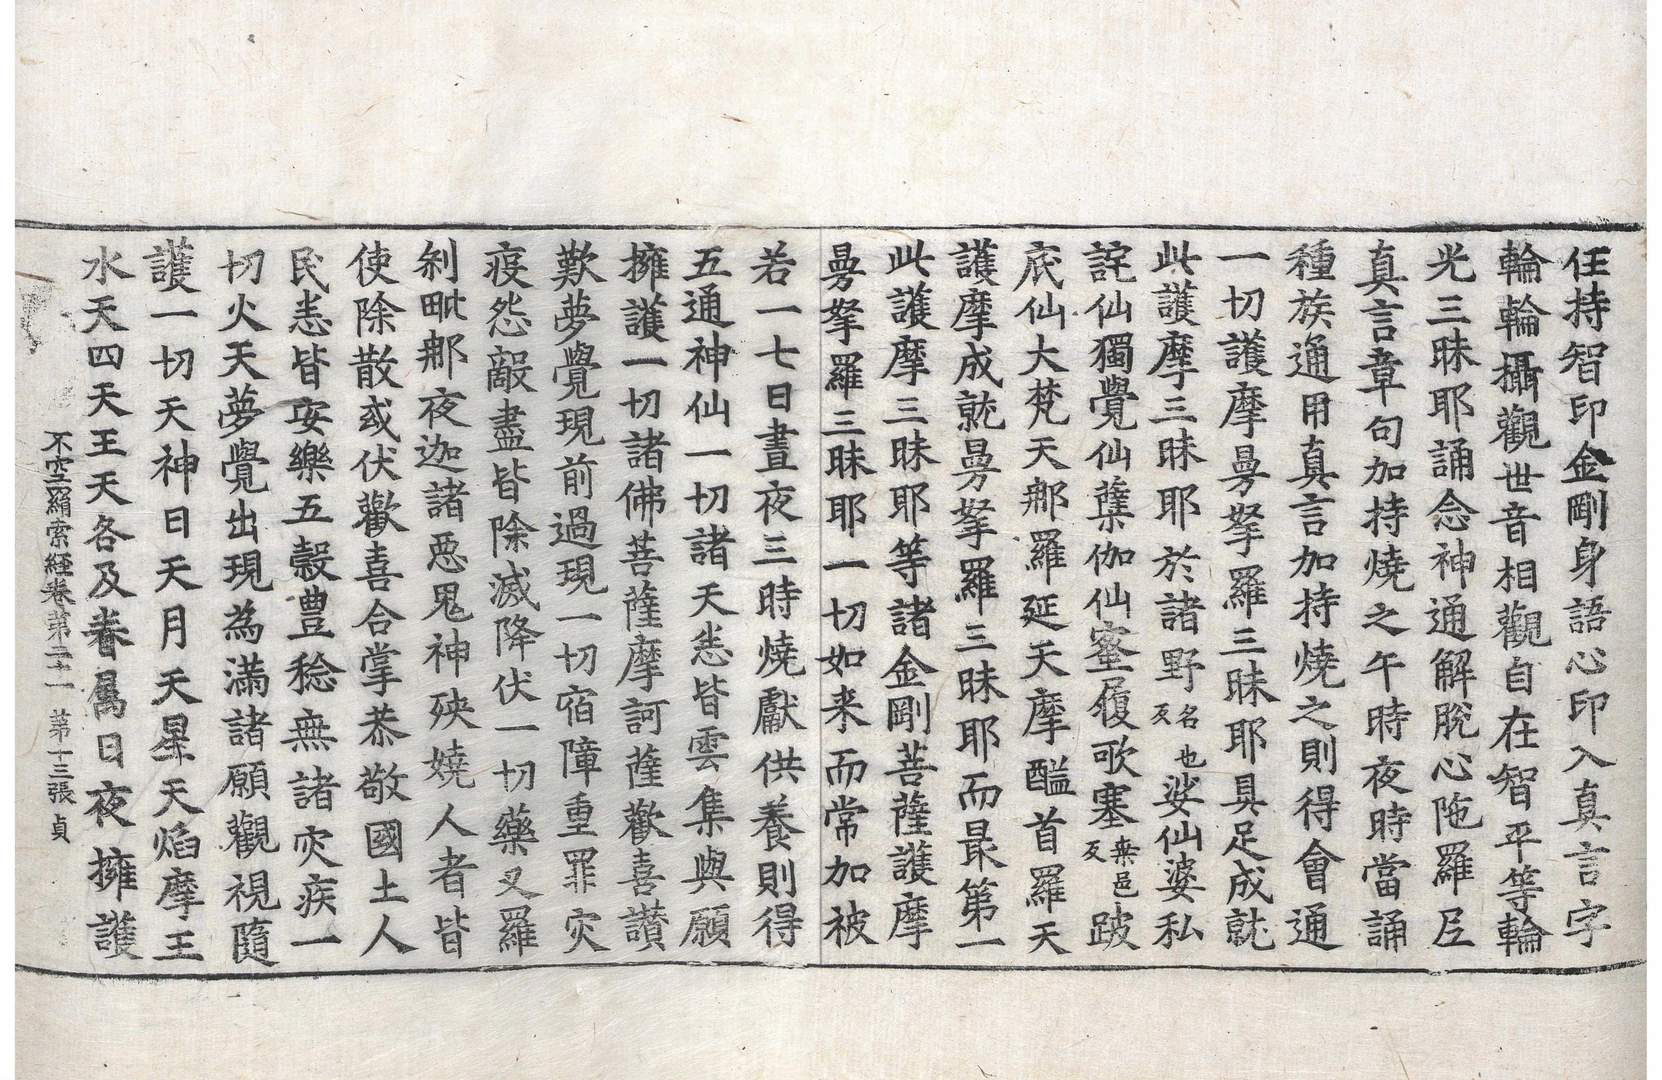 任持智印金剛身語心印入真言字
輪輪攝觀世音相觀自在智平等輪
光三昧耶誦念神通解脫心陁羅尼
真言章句加持燒之午時夜時當誦
種族通用真言加持燒之則得會通
一切護摩曼拏羅三昧耶具足成就
此護摩三昧耶於諸野名也反娑仙婆私
詫仙獨覺仙蘗伽仙蜜履歌塞桒邑反跛
底仙大梵天那羅延天摩醯首羅天
護摩成就曼拏羅三昧耶而最第一
此護摩三昧耶等諸金剛菩薩護摩
曼拏羅三昧耶一切如来而常加被
若一七日晝夜三時燒獻供養則得
五通神仙一切諸天悉皆雲集與願
擁護一切諸佛菩薩摩訶薩歡喜讃
歎夢覺現前過現一切宿障重罪灾
疫怨敵盡皆除滅降伏一切藥叉羅
剎毗那夜迦諸惡鬼神殃嬈人者皆
使除散或伏歡喜合掌恭敬國土人
民悉皆安樂五穀豊稔無諸灾疾一
切火天夢覺出現為滿諸願觀視隨
護一切天神日天月天星天焰摩王
水天四天王天各及眷屬日夜擁護
不空羂索経卷第二十一 第十三張 貞